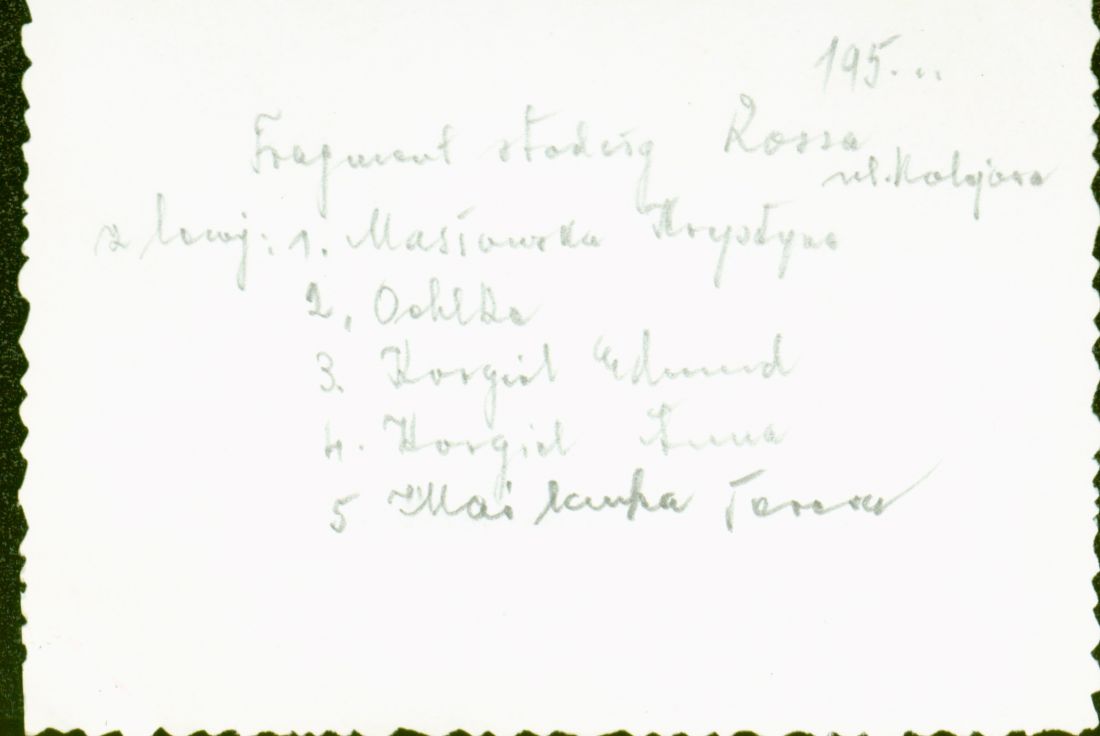 195...
Fragment Rossa
ul. Kolejowa
z lewej: 1. Masłowska Krystyna
2, Ochlka
3. Korgiel Edmund
4. Korgiel Anna
5 Teresa